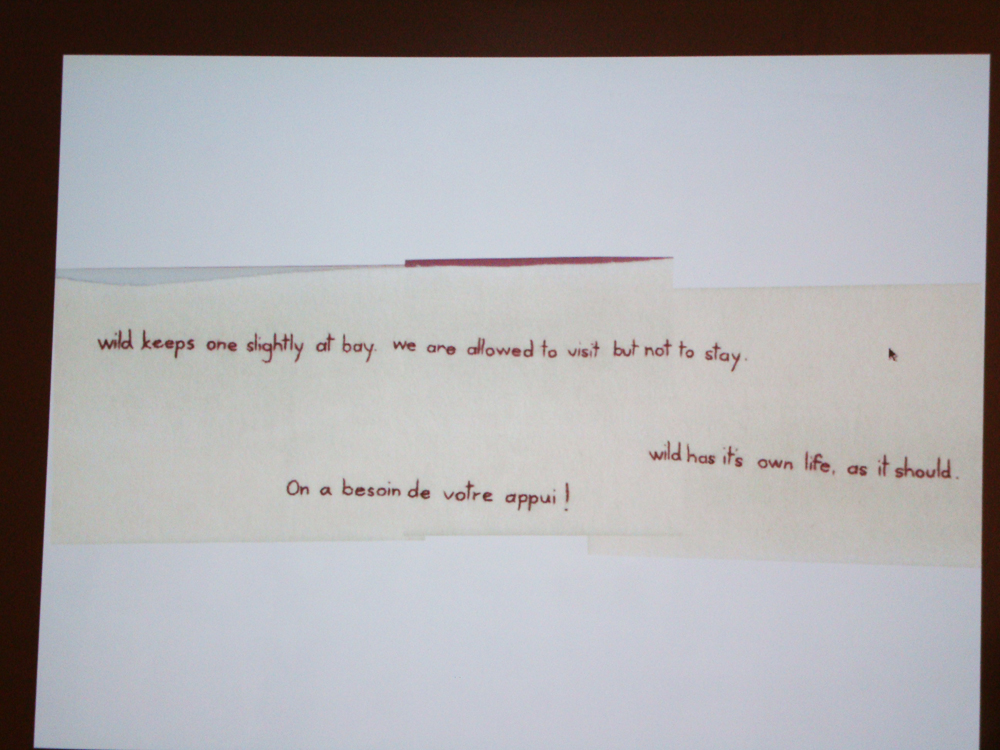 wild keeps one slightly at bay. we are allowed to visit but not to stay.
wild has it's own life, as it should.
On a besoin de votre appui !